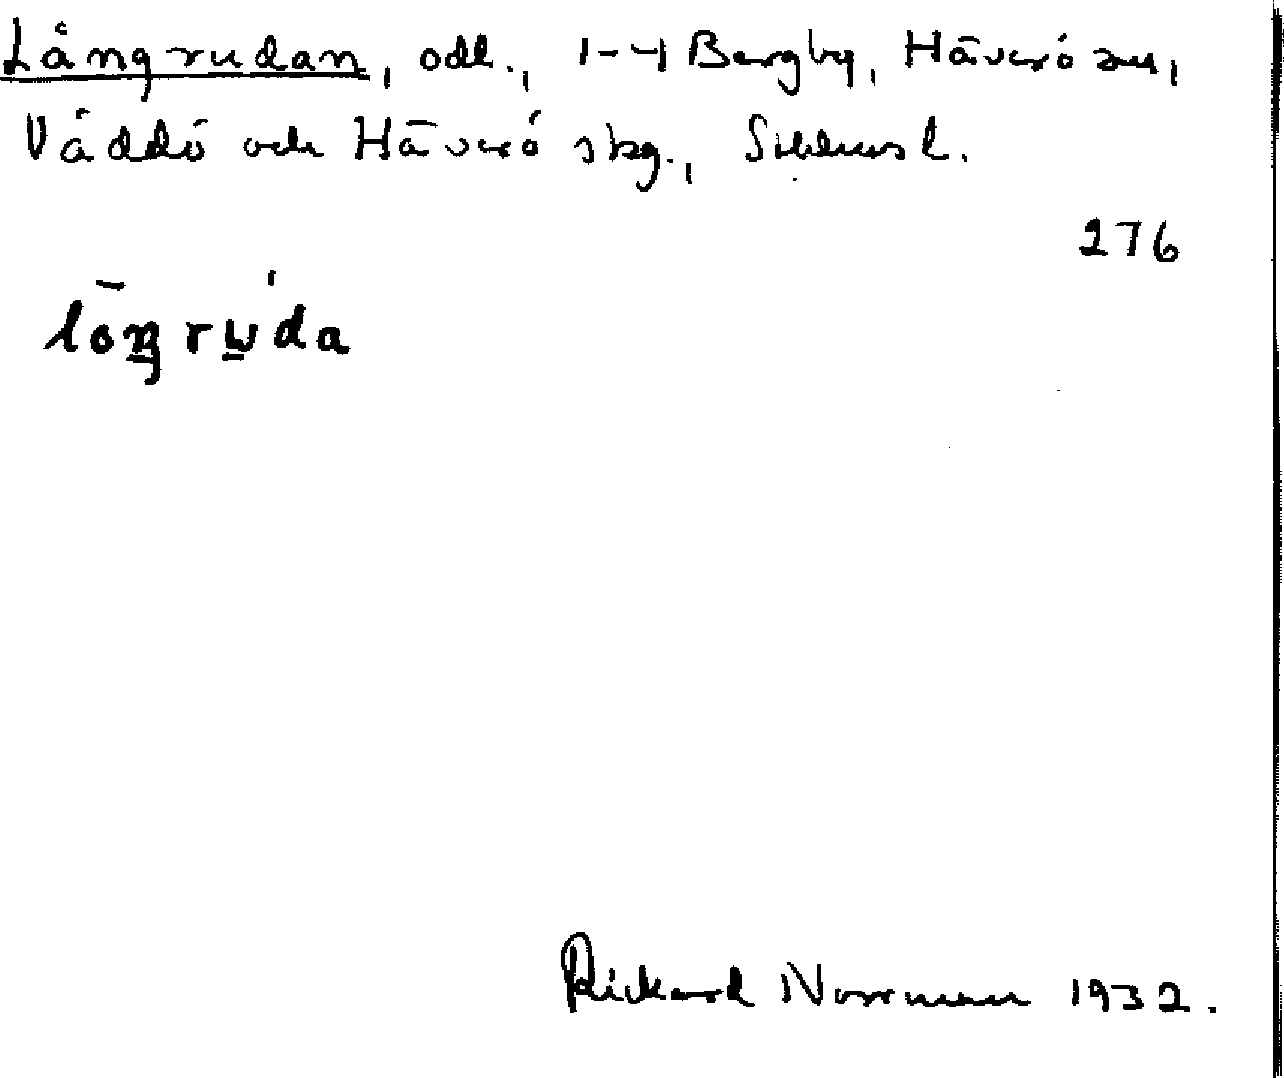 Långrudan, odl., 1-4 Bergby, Häverö sn,
Väddö och Häverö skg., Sthlms l.
276
lo̅ŋru̱'da
Rickard Norrman 1932.